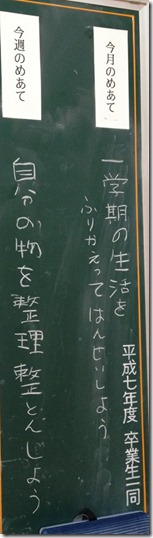 今月のめあて
一学期の生活を
ふりかえってはんせいしよう
平成七年度 卒業生一同
今週のめあて
自分の物を整理整とんしよう